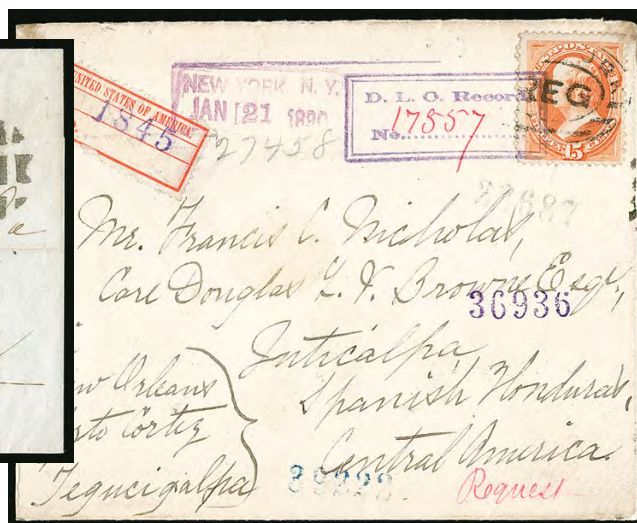 UNITED STATES OF AMERICA
1845
NEW YORK, N. Y.
JAN 21 1890
27458
D. L. O. Record
No. 17557
REG
15
Mr. Francis C. Nicholas,
Care Douglas L. V. Browne Esqr,
36936
Juticalpa,
Spanish Honduras,
Central America.
w Orleans
rto Cortez
Tegucigalpa
Request